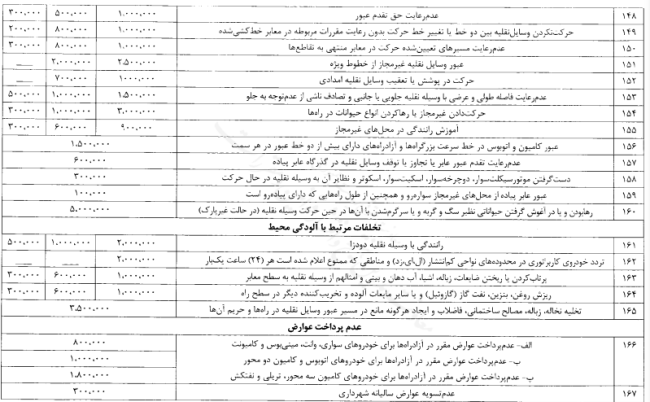 ۱۴۸ عدم‌رعایت حق تقدم عبور ۱،۰۰۰،۰۰۰ ۵۰۰،۰۰۰ ۳۰۰،۰۰۰
۱۴۹ حرکت‌نکردن وسایل‌نقلیه بین دو خط یا تغییر خط حرکت بدون رعایت مقررات مربوطه در معابر خط‌کشی‌شده ۱،۰۰۰،۰۰۰ ۸۰۰،۰۰۰ ۲۰۰،۰۰۰
۱۵۰ عدم‌رعایت مسیرهای تعیین‌شده حرکت در معابر منتهی به تقاطع‌ها ۱،۰۰۰،۰۰۰ ۸۰۰،۰۰۰ ۳۰۰،۰۰۰
۱۵۱ عبور وسایل نقلیه غیرمجاز از خطوط ویژه ۲،۵۰۰،۰۰۰ ۲،۰۰۰،۰۰۰ ــــ
۱۵۲ حرکت در پوشش یا تعقیب وسایل نقلیه امدادی ۱۰۰۰،۰۰۰ ۷۰۰،۰۰۰ ــــ
۱۵۳ عدم‌رعایت فاصله طولی و عرضی با وسیله نقلیه جلویی یا جانبی و تصادف ناشی از عدم‌توجه به جلو ۱،۵۰۰،۰۰۰ ۱،۰۰۰،۰۰۰ ۵۰۰،۰۰۰
۱۵۴ حرکت‌دادن غیرمجاز یا رهاکردن انواع حیوانات در راه‌ها ۳،۰۰۰،۰۰۰ ۱،۰۰۰،۰۰۰ ۳۰۰،۰۰۰
۱۵۵ آموزش رانندگی در محل‌های غیرمجاز ۹۰۰،۰۰۰ ۶۰۰،۰۰۰ ۳۰۰،۰۰۰
۱۵۶ عبور کامیون و اتوبوس در خط سرعت بزرگراه‌ها و آزادراه‌های دارای بیش از دو خط عبور در هر سمت ۱،۵۰۰،۰۰۰
۱۵۷ عدم‌رعایت تقدم عبور عابر یا تجاوز یا توقف وسایل نقلیه در گذرگاه عابر پیاده ۶۰۰،۰۰۰
۱۵۸ دست‌گرفتن موتورسیکلت‌سوار، دوچرخه‌سوار، اسکیت‌سوار، اسکوتر و نظایر آن به وسیله نقلیه در حال حرکت ۳۰۰،۰۰۰
۱۵۹ عبور عابر پیاده از محل‌های غیرمجاز سواره‌رو و همچنین از طول راه‌هایی که دارای پیاده‌رو است ۱۰۰،۰۰۰
۱۶۰ رهابودن و یا در آغوش گرفتن حیواناتی نظیر سگ و گربه و یا سرگرم‌شدن با آن‌ها در حین حرکت وسیله نقلیه (در حالت غیرپارک) ۵،۰۰۰،۰۰۰
تخلفات مرتبط با آلودگی محیط
۱۶۱ رانندگی با وسیله نقلیه دودزا ۲،۰۰۰،۰۰۰ ۱،۰۰۰،۰۰۰ ۵۰۰،۰۰۰
۱۶۲ تردد خودروی کاربراتوری در محدوده‌های نواحی کم‌انتشار (ال‌ای‌زد) و مناطقی که ممنوع اعلام شده است هر (۲۴) ساعت یک‌بار ۲،۰۰۰،۰۰۰ ــــ ــــ
۱۶۳ پرتاب‌کردن یا ریختن ضایعات، زباله، اشیا، آب دهان و بینی و امثالهم از وسیله نقلیه به سطح معابر ۱،۰۰۰،۰۰۰ ۶۰۰،۰۰۰ ۳۰۰،۰۰۰
۱۶۴ ریزش روغن، بنزین، نفت گاز (گازوئیل) و یا سایر مایعات آلوده و تخریب‌کننده دیگر در سطح راه ۱،۰۰۰،۰۰۰ ۶۰۰،۰۰۰ ۳۰۰،۰۰۰
۱۶۵ تخلیه نخاله، زباله، مصالح ساختمانی، فاضلاب و ایجاد هرگونه مانع در مسیر عبور وسایل نقلیه در راه‌ها و حریم آن‌ها ۳،۵۰۰،۰۰۰
عدم پرداخت عوارض
۱۶۶ الف- عدم‌پرداخت عوارض مقرر در آزادراه‌ها برای خودروهای سواری، وانت، مینی‌بوس و کامیونت ۸۰۰،۰۰۰
ب- عدم‌پرداخت عوارض مقرر در آزادراه‌ها برای خودروهای اتوبوس و کامیون دو محور ۱،۰۰۰،۰۰۰
پ- عدم‌پرداخت عوارض مقرر در آزادراه‌ها برای خودروهای کامیون سه محور، تریلی و نفتکش ۱،۸۰۰،۰۰۰
۱۶۷ عدم‌تسویه عوارض سالیانه شهرداری ۳۰۰،۰۰۰